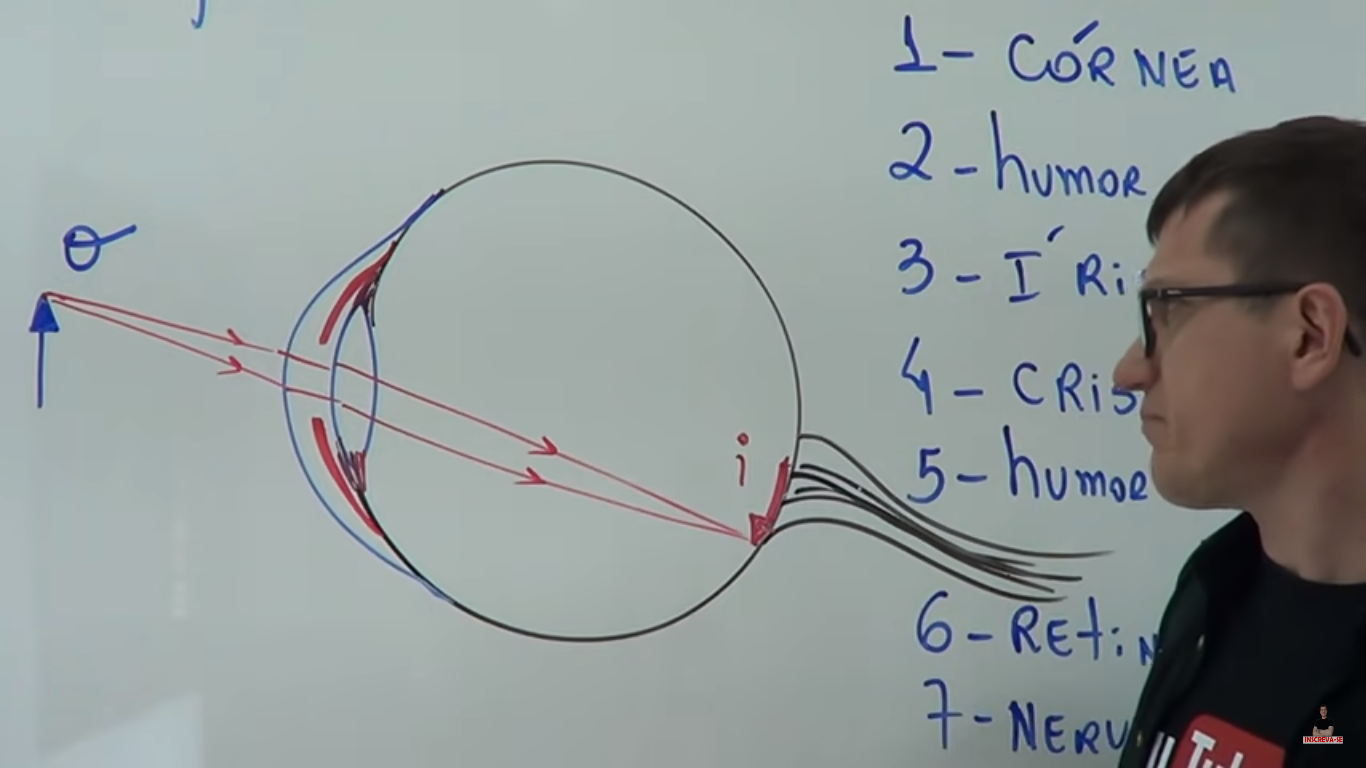 o
i
1- CÓRNEA
2 - humor
3 - ÍRi
4 - CRis
5- humor
6- REtiN
7- NERV
Tub
INSCREVA-SE